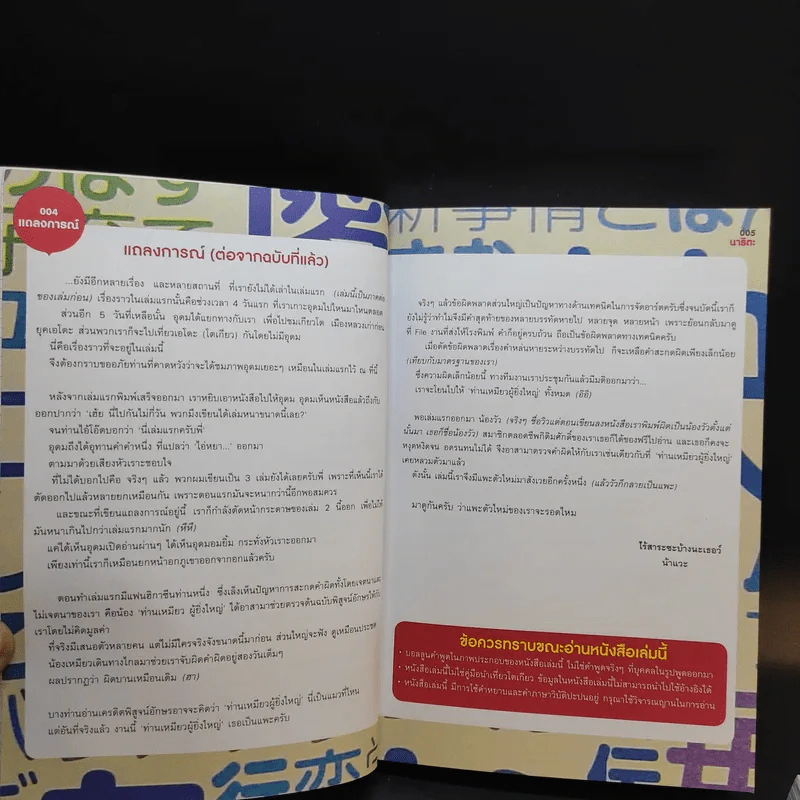 004
แถลงการณ์
แถลงการณ์ (ต่อจากฉบับที่แล้ว)
...ยังมีอีกหลายเรื่อง และหลายสถานที่ ที่เรายังไม่ได้เล่าในเล่มแรก (เล่มนี้เป็นภาคต่อ
ของเล่มก่อน) เรื่องราวในเล่มแรกนั้นคือช่วงเวลา 4 วันแรก ที่เราเกาะอุดมไปไหนมาไหนตลอด
ส่วนอีก 5 วันที่เหลือนั้น อุดมได้แยกทางกับเรา เพื่อไปชมเกียวโต เมืองหลวงเก่าก่อน
ยุคเอโดะ ส่วนพวกเราก็จะไปเที่ยวเอโดะ (โตเกียว) กันโดยไม่มีอุดม
นี่คือเรื่องราวที่จะอยู่ในเล่มนี้
จึงต้องกราบขออภัยท่านที่คาดหวังว่าจะได้ชมภาพอุดมเยอะๆ เหมือนในเล่มแรกไว้ ณ ที่นี้
หลังจากเล่มแรกพิมพ์เสร็จออกมา เราหยิบเอาหนังสือไปให้อุดม อุดมเห็นหนังสือแล้วถึงกับ
ออกปากว่า 'เฮ้ย นี่ไปกันไม่กี่วัน พวกมึงเขียนได้เล่มหนาขนาดนี้เลย?'
จนท่านไอ้โอ๊ตบอกว่า 'นี่เล่มแรกครับพี่'
อุดมถึงได้อุทานคำคำหนึ่ง ที่แปลว่า 'ไอ่หยา...' ออกมา
ตามมาด้วยเสียงหัวเราะชอบใจ
ที่ไม่ได้บอกไปคือ จริงๆ แล้ว พวกผมเขียนเป็น 3 เล่มยังได้เลยครับพี่ เพราะที่เห็นนี้เราได้
ตัดออกไปแล้วหลายยกเหมือนกัน เพราะตอนแรกมันจะหนากว่านี้อีกพอสมควร
และขณะที่เขียนแถลงการณ์อยู่นี้ เราก็กำลังตัดหน้ากระดาษของเล่ม 2 นี้ออก เพื่อไม่ให้
มันหนาเกินไปกว่าเล่มแรกมากนัก (หึหึ)
แค่ได้เห็นอุดมเปิดอ่านผ่านๆ ได้เห็นอุดมอมยิ้ม กระทั่งหัวเราะออกมา
เพียงเท่านี้เราก็เหมือนยกหน้าอกภูเขาออกจากอกแล้วครับ
ตอนทำเล่มแรกมีแฟนฮิกาซีนท่านหนึ่ง ซึ่งเล็งเห็นปัญหาการสะกดคำผิดทั้งโดยเจตนาและ
ไม่เจตนาของเรา คือน้อง 'ท่านเหมียว ผู้ยิ่งใหญ่' ได้อาสามาช่วยตรวจต้นฉบับพิสูจน์อักษรให้กับ
เราโดยไม่คิดมูลค่า
ที่จริงมีเสนอตัวหลายคน แต่ไม่มีใครจริงจังขนาดนี้มาก่อน ส่วนใหญ่จะฟัง ดูเหมือนประชด
น้องเหมียวเดินทางไกลมาช่วยเราจับผิดคำผิดอยู่สองวันเต็มๆ
ผลปรากฏว่า ผิดบานเหมือนเดิม (ฮา)
บางท่านอ่านเครดิตพิสูจน์อักษรอาจจะคิดว่า 'ท่านเหมียวผู้ยิ่งใหญ่' นี้เป็นแมวที่ไหน
แต่อันที่จริงแล้ว งานนี้ 'ท่านเหมียวผู้ยิ่งใหญ่' เธอเป็นแพะครับ
005
นาริตะ
จริงๆ แล้วข้อผิดพลาดส่วนใหญ่เป็นปัญหาทางด้านเทคนิคในการจัดอาร์ตครับซึ่งจนบัดนี้เราก็
ยังไม่รู้ว่าทำไมจึงมีคำสุดท้ายของหลายบรรทัดหายไป หลายจุด หลายหน้า เพราะย้อนกลับมาดู
ที่ File งานที่ส่งให้โรงพิมพ์ คำก็อยู่ครบถ้วน ถือเป็นข้อผิดพลาดทางเทคนิคครับ
เมื่อตัดข้อผิดพลาดเรื่องคำหล่นหายระหว่างบรรทัดไป ก็จะเหลือคำสะกดผิดเพียงเล็กน้อย
(เทียบกับมาตรฐานของเรา)
ซึ่งความผิดเล็กน้อยนี้ ทางทีมงานเราประชุมกันแล้วมีมติออกมาว่า...
เราจะโยนไปให้ 'ท่านเหมียวผู้ยิ่งใหญ่' ทั้งหมด (อิอิ)
พอเล่มแรกออกมา น้องวัว (จริงๆ ชื่อวิวแต่ตอนเขียนลงหนังสือเราพิมพ์ผิดเป็นน้องวัวตั้งแต่
นั้นมา เธอก็ชื่อน้องวัว) สมาชิกตลอดชีพกิติมศักดิ์ของเราเธอก็ได้ของฟรีไปอ่าน และเธอก็คงจะ
หงุดหงิดจน อดรนทนไม่ได้ จึงอาสามาตรวจคำผิดให้กับเราเช่นเดียวกับที่ 'ท่านเหมียวผู้ยิ่งใหญ่'
เคยหลวมตัวมาแล้ว
ดังนั้น เล่มนี้เราจึงมีแพะตัวใหม่มาสังเวยอีกครั้งหนึ่ง (แล้ววัวก็กลายเป็นแพะ)
มาดูกันครับ ว่าแพะตัวใหม่ของเราจะรอดไหม
ไร้สาระซะบ้างนะเธอว์
น้าแวะ
ข้อควรทราบขณะอ่านหนังสือเล่มนี้
• บอลลูนคำพูดในภาพประกอบของหนังสือเล่มนี้ ไม่ใช่คำพูดจริงๆ ที่บุคคลในรูปพูดออกมา
• หนังสือเล่มนี้ไม่ใช่คู่มือนำเที่ยวโตเกียว ข้อมูลในหนังสือเล่มนี้ไม่สามารถนำไปใช้อ้างอิงได้
• หนังสือเล่มนี้ มีการใช้คำหยาบและคำภาษาวิบัติปะปนอยู่ กรุณาใช้วิจารณญานในการอ่าน
新事情とは
行恋